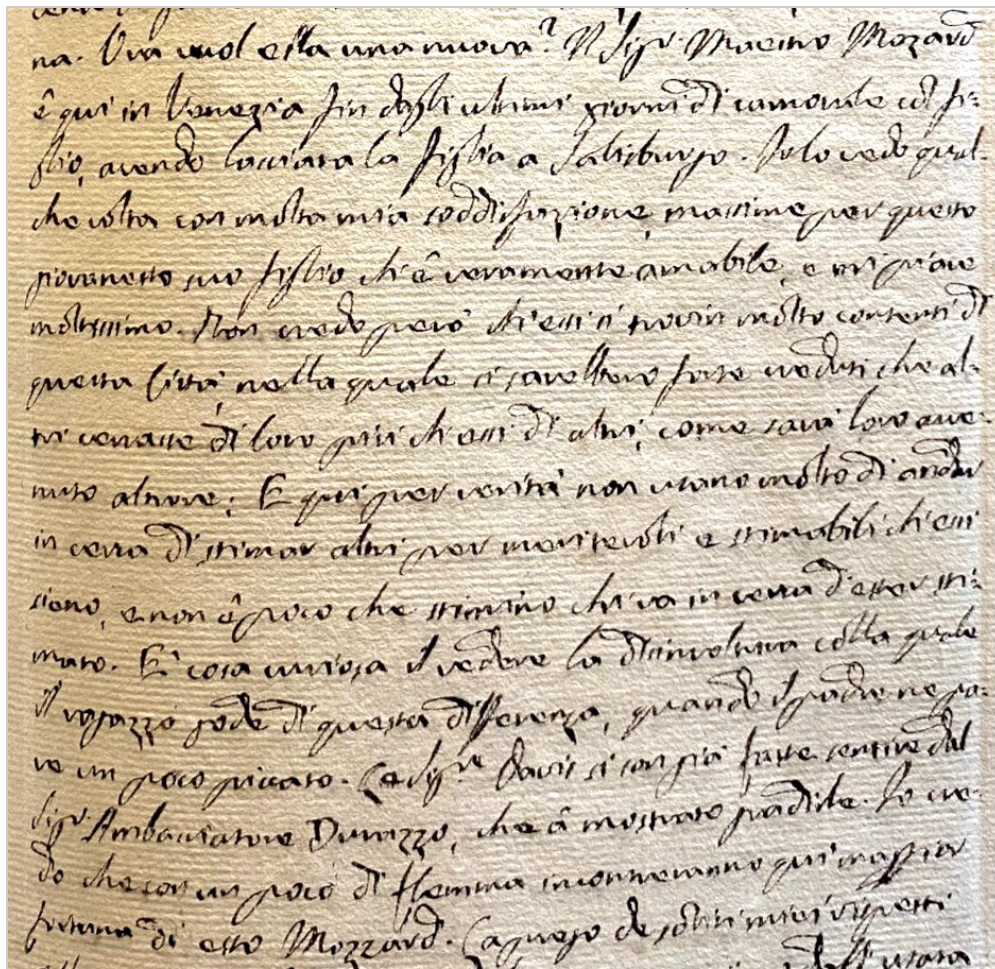 na. Ora vuol ella una nuova? Il Sigr. Maestro Mozard
è qui in Venezia fin dagli ultimi giorni di carnovale col fi=
glio, avendo lasciata la figlia a Salisburgo. Io lo vedo qual-
che volta con molta mia soddisfazione, massime per questo
giovanetto suo figlio, ch'è veramente amabile, e mi piace
moltissimo. Non credo però ch'essi si trovin molto contenti di
questa Città, nella quale si sarebbero forse creduti che al-
tri cercasse di loro più ch'essi di altri, come sarà loro avve-
nuto altrove: E qui per verità non usano molto di andar
in cerca di stimar altri per meritevoli e stimabili ch'essi
sieno, e non è poco che stimino chi va in cerca d'esser sti=
mato. E' cosa curiosa il vedere la disinvoltura colla quale
il ragazzo gode di questa differenza, quando il padre ne pa-
re un poco piccato. Le Sigre Davis si son già fatte sentire dal
Sigr. Ambasciatore Durazzo, che à mostrato gradirle. Io cre-
do che con un poco di flemma incontreranno qui maggior
fortuna di esso Mozzard. La prego de soliti miei rispetti